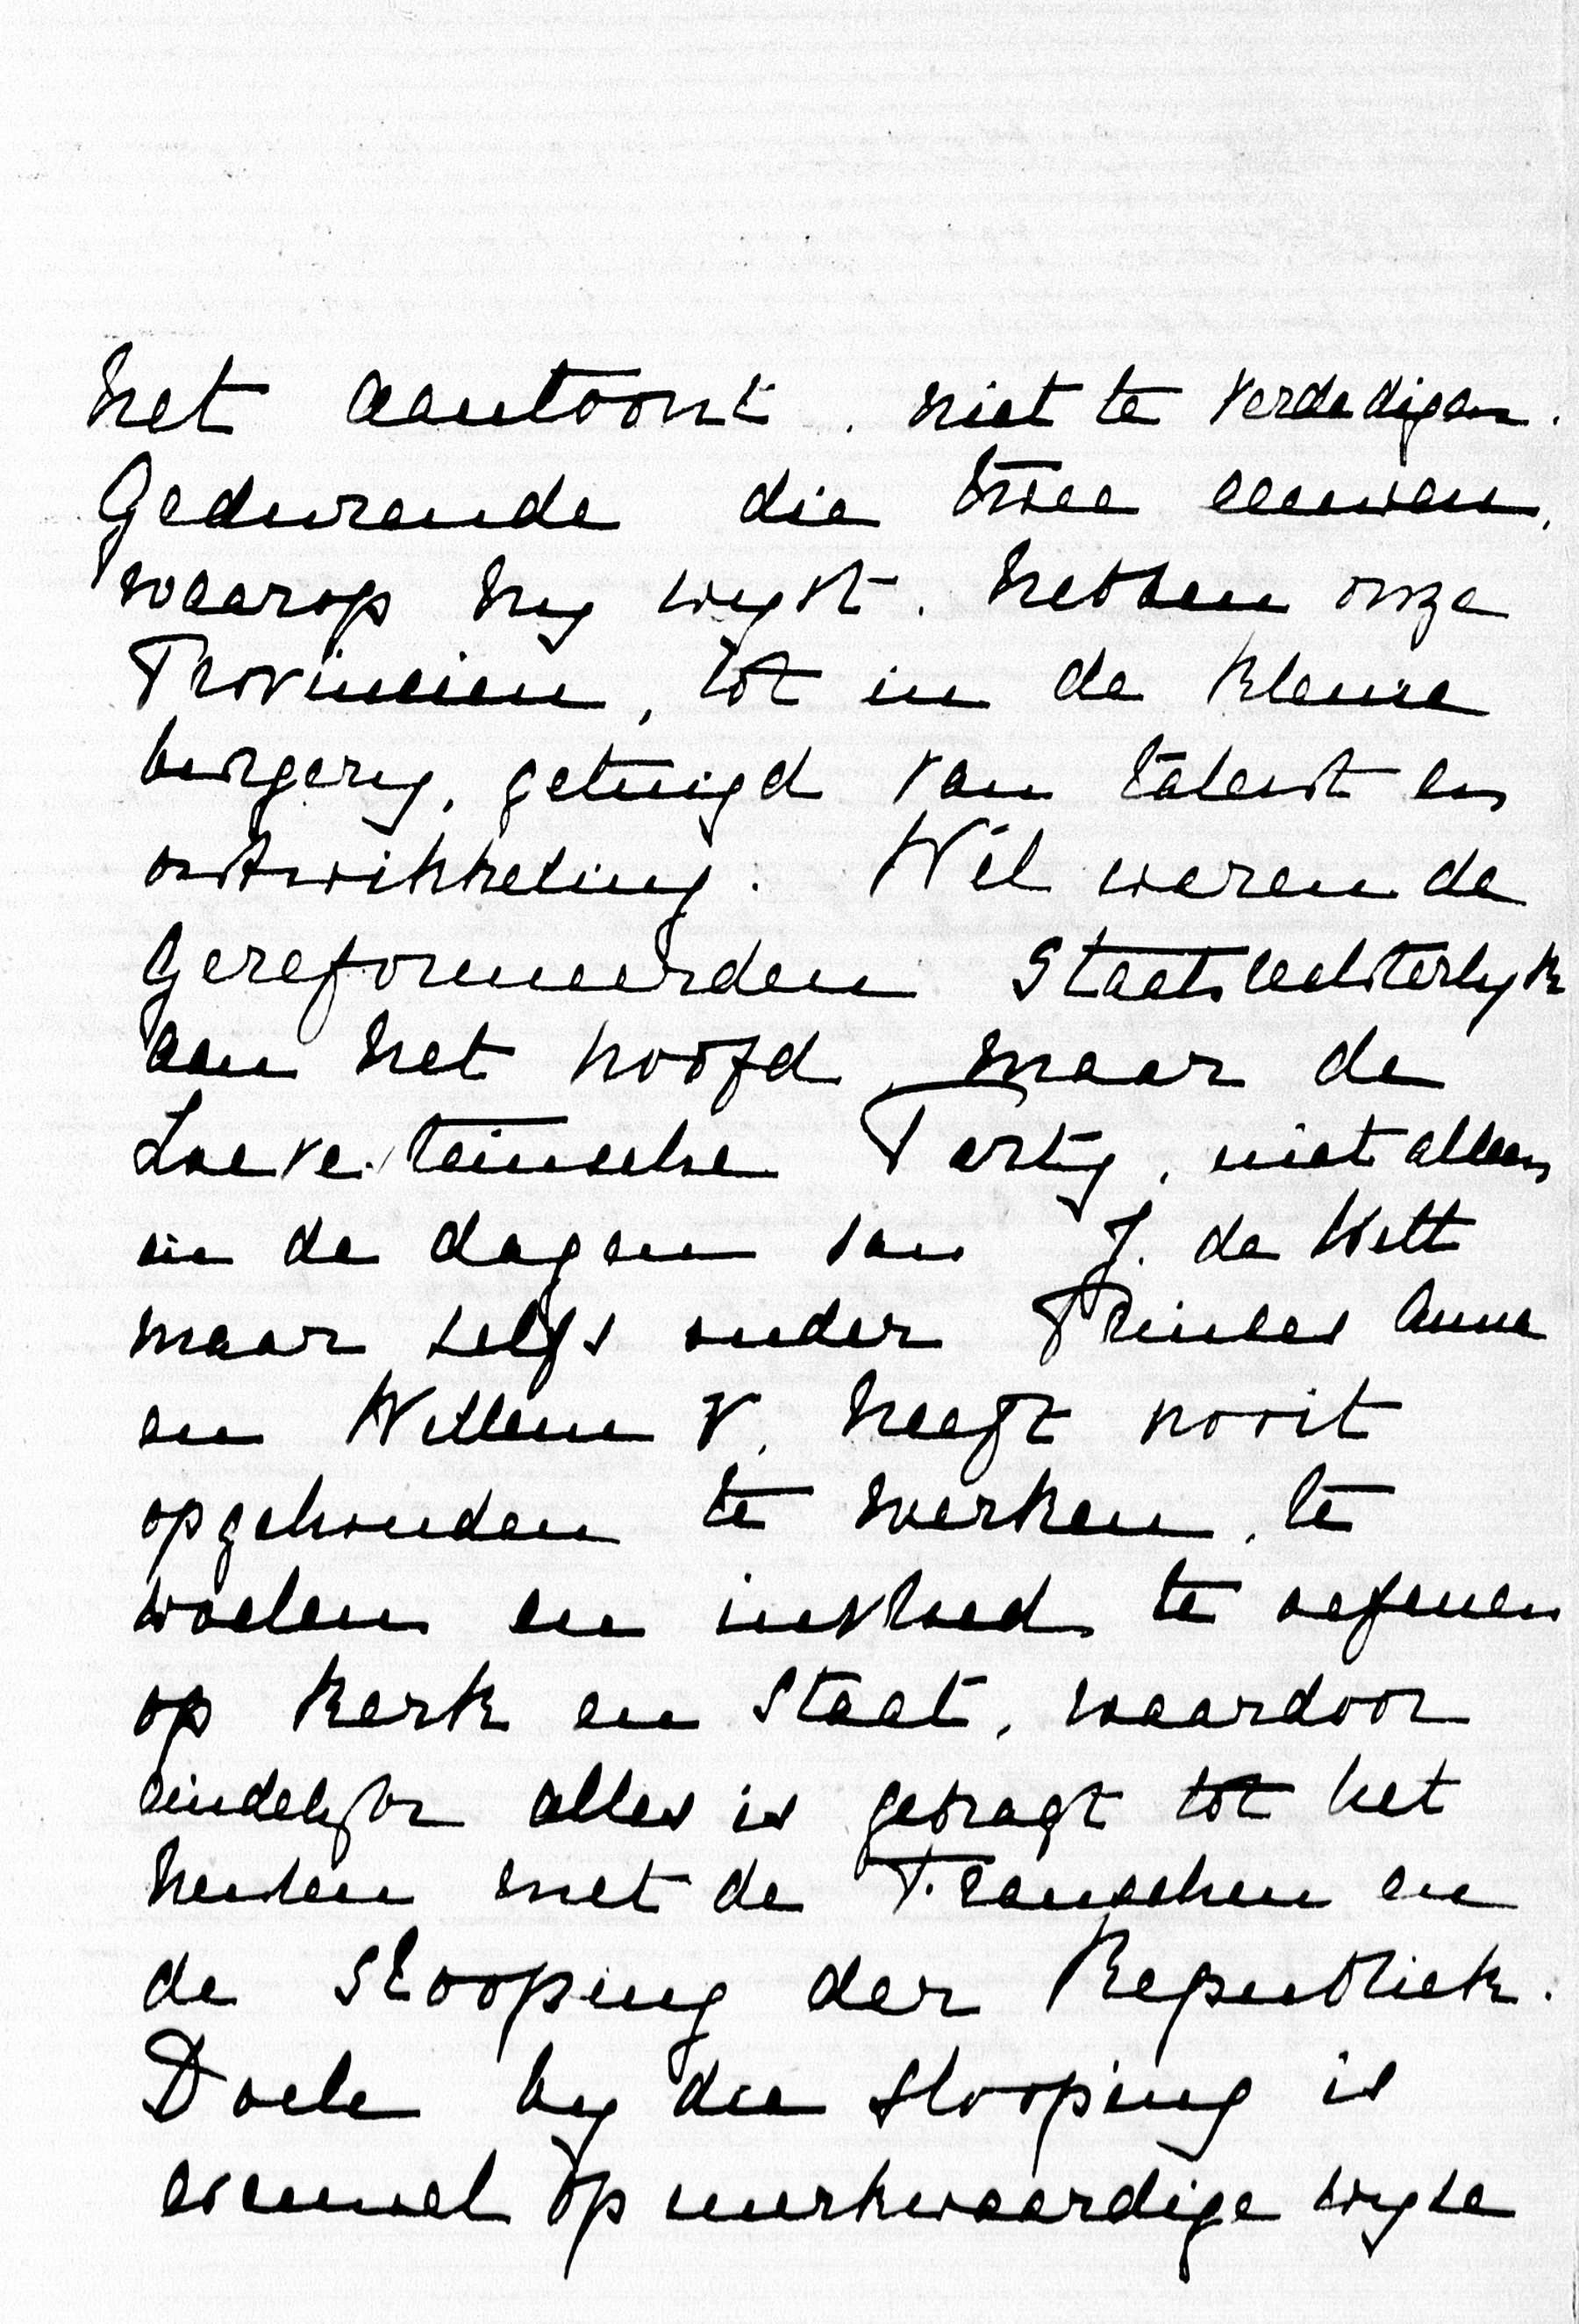 het aantoont, niet te verdedigen.
Gedurende die twee eeuwen,
waarop hij wijst, hebben onze
Provinciën, tot in de kleine
burgerij, getuigd van talent en
ontwikkeling. Wel waren de
Gereformeerden Staatsrechterlijk
aan het hoofd, maar de
Loevesteinsche Partij, niet alleen
in de dagen van J. de Witt
maar zelfs onder Prinses Anna
en Willem V, heeft nooit
opgehouden te werken, te
woelen en invloed te oefenen
op Kerk en Staat, waardoor
eindelijk alles is gebragt tot het
heulen met de Franschen en
de Slooping der Republiek.
Doch bij die slooping is
evenwel op merkwaardige wijze